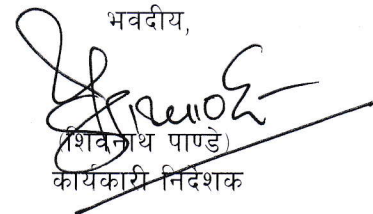 भवदीय,
(शिवनाथ पाण्डे)
कार्यकारी निर्देशक